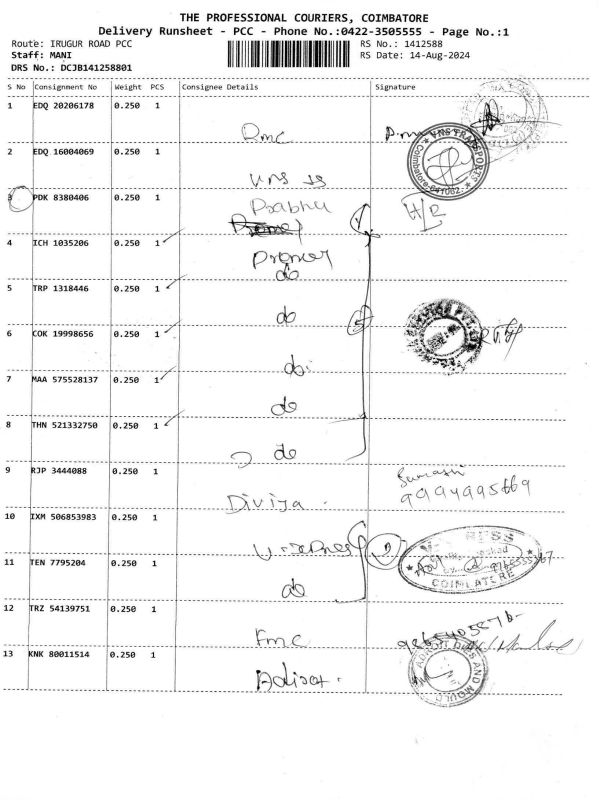 THE PROFESSIONAL COURIERS, COIMBATORE
Delivery Runsheet - PCC - Phone No.:0422-3505555 - Page No.:1
Route: IRUGUR ROAD PCC
RS No.: 1412588
Staff: MANI
RS Date: 14-Aug-2024
DRS No.: DCJB141258801
S No Consignment No Weight PCS Consignee Details Signature
1 EDQ 20206178 0.250 1
Rmc
2 EDQ 16004069 0.250 1
VNS TRANSPORTS
Coimbatore-641062.
3 PDK 8380406 0.250 1
Prabhu
4 ICH 1035206 0.250 1
Premier
do
5 TRP 1318446 0.250 1
do
6 COK 19998656 0.250 1
do
7 MAA 575528137 0.250 1
do
8 THN 521332750 0.250 1
do
9 RJP 3444088 0.250 1
Divija
9994995669
10 IXM 506853983 0.250 1
11 TEN 7795204 0.250 1
do
COIMBATORE
12 TRZ 54139751 0.250 1
Fmc
13 KNK 80011514 0.250 1
DIES AND MOULD